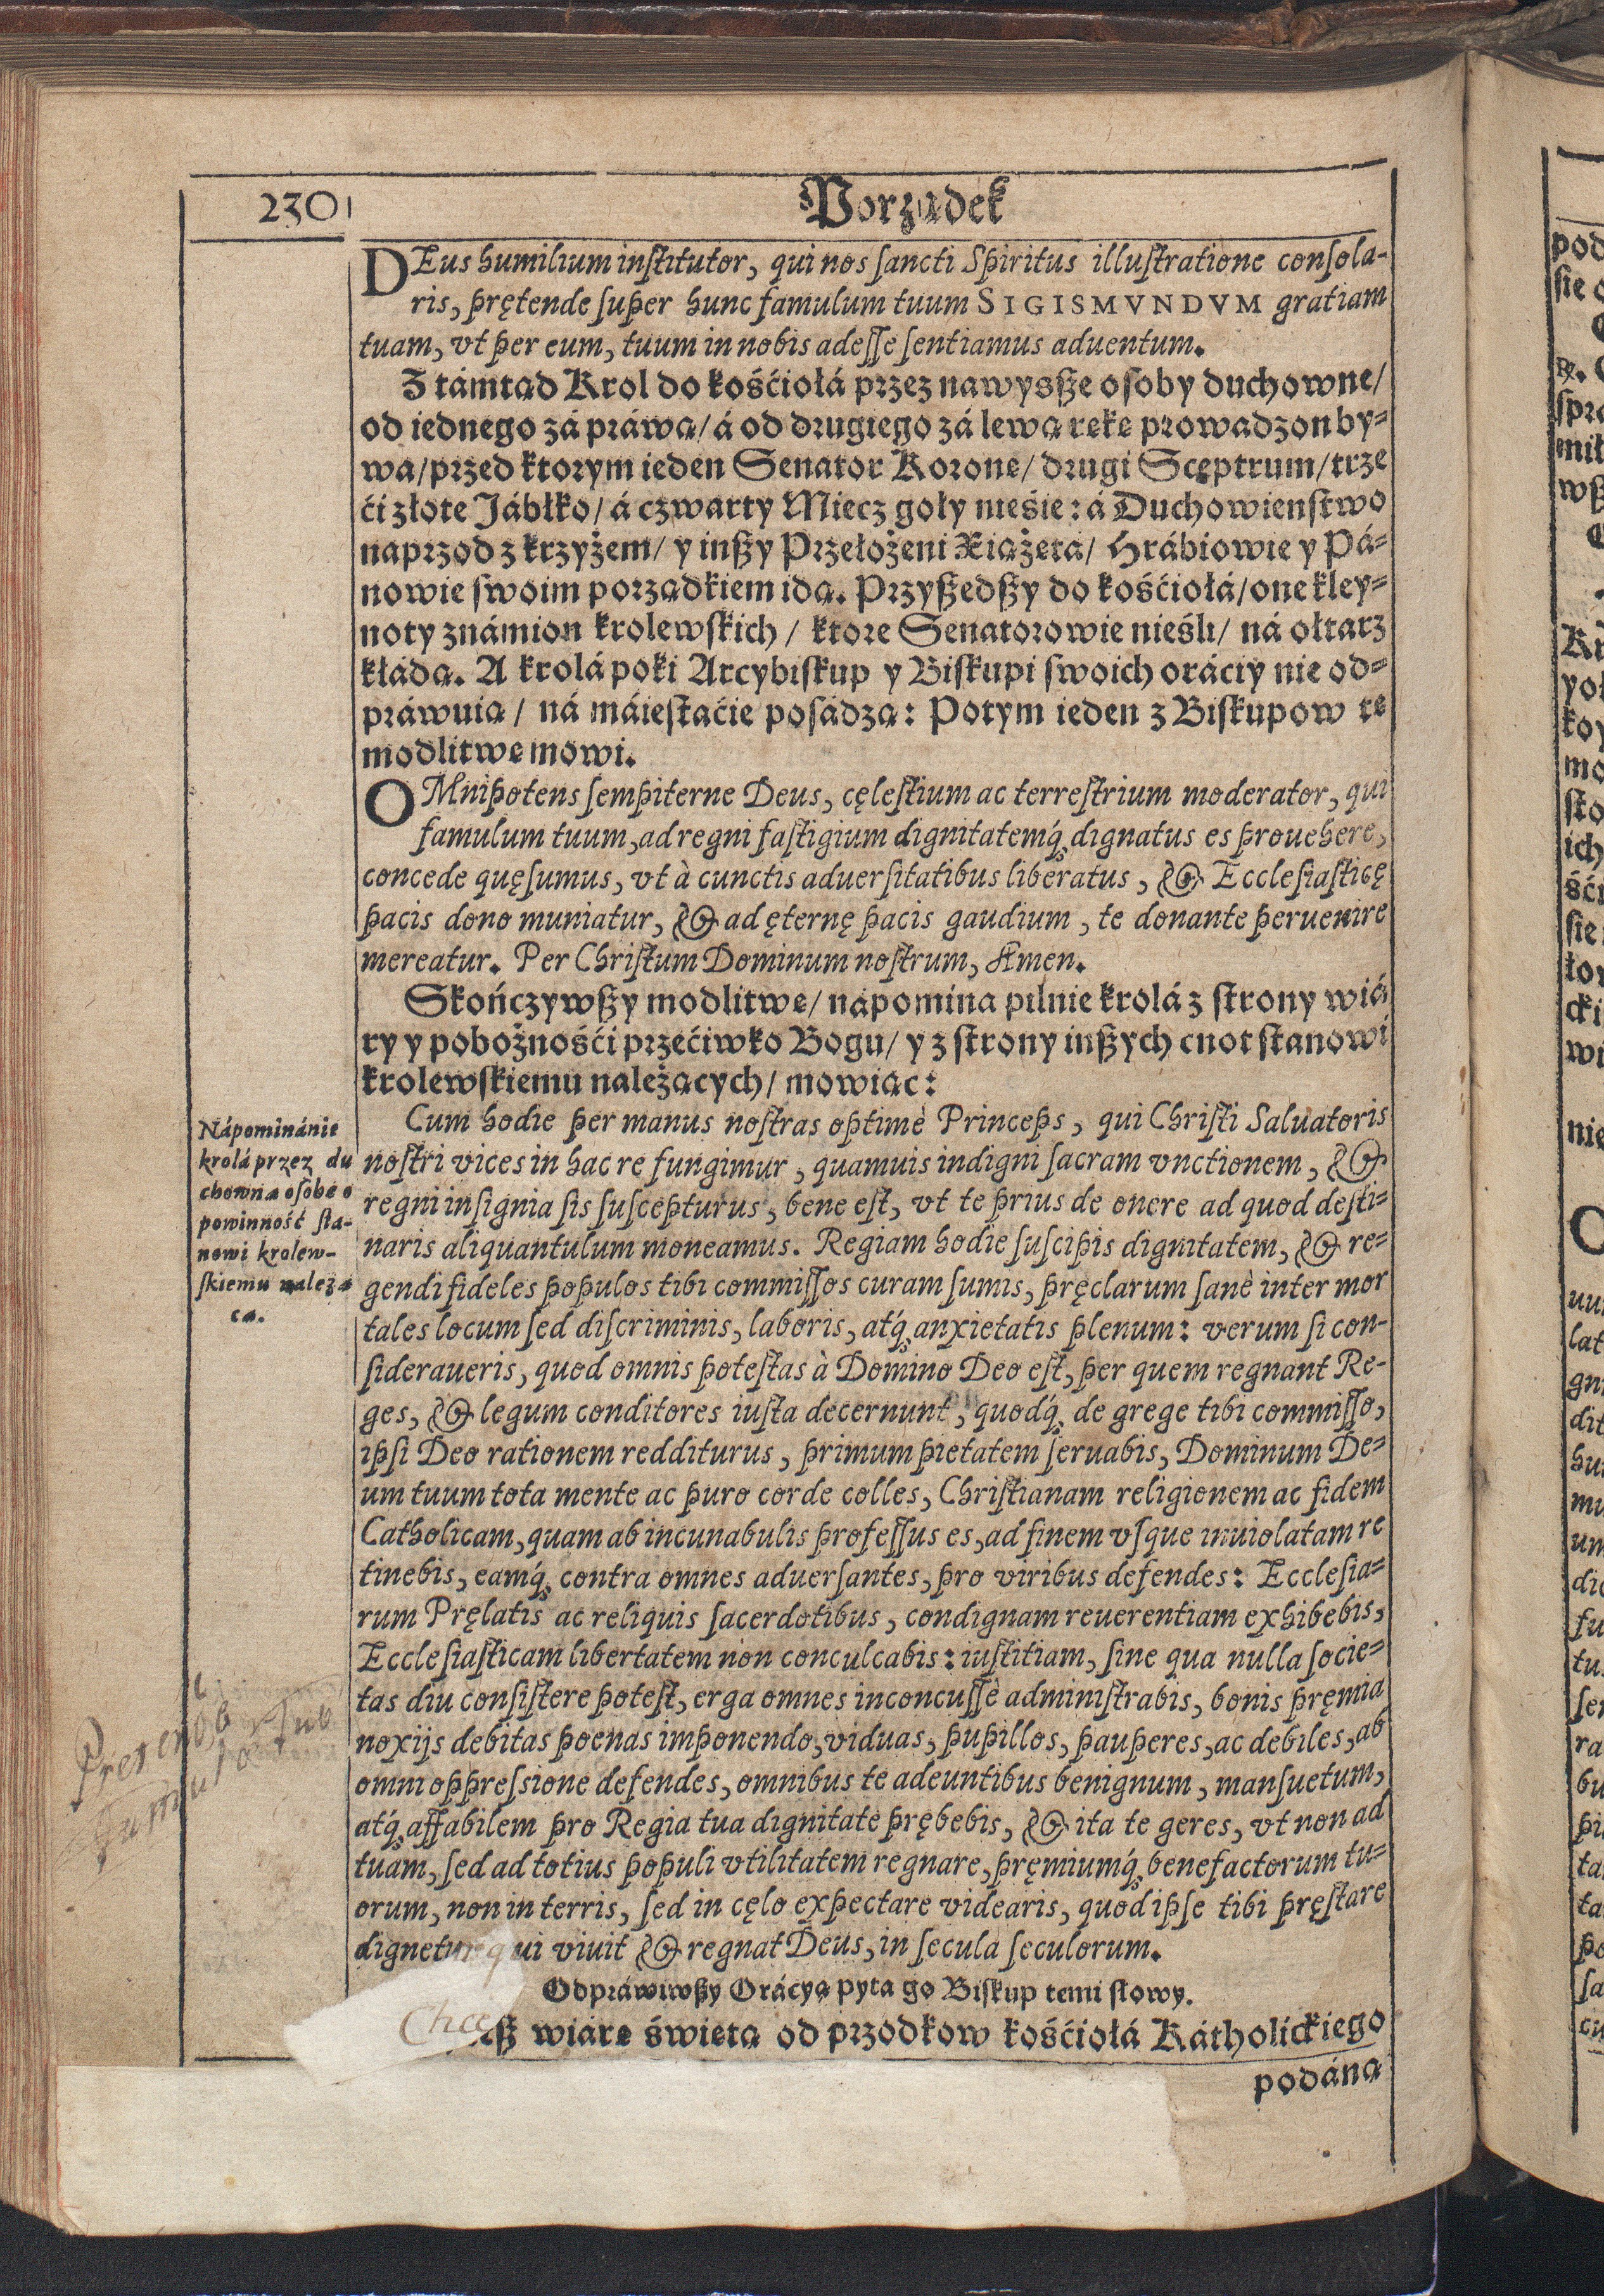 230
Porządek
DEus humilium inſtitutor, qui nos ſancti Spiritus illuſtratione conſola-
ris, prętende ſuper hunc famulum tuum SIGISMVNDVM gratiam
tuam, vt per eum, tuum in nobis adeſſe ſentiamus aduentum.
Z támtąd Krol do kośćiołá przez nawysſze oſoby duchowne/
od iednego zá práwą/ á od drugiego zá lewą rękę prowadzon by-
wa/ przed ktorym ieden Senator Koronę/ drugi Scęptrum/ trze
ći złote Jábłko/ á czwarty Miecz goły nieśie: á Duchowienſtwo
naprzod z krzyżem/ y inſzy Przełożeni Xiążętá/ Hrábiowie y Pá-
nowie ſwoim porządkiem idą. Przyſzedſzy do kośćiołá/ one kley-
noty známion krolewſkich/ ktore Senatorowie nieśli/ ná ołtarz
kłádą. A krolá poki Arcybiſkup y Biſkupi ſwoich oráciy nie od-
práwuią/ ná máieſtaćie poſádzą: Potym ieden z Biſkupow tę
modlitwę mowi.
OMnipotens ſempiterne Deus, cęleſtium ac terreſtrium moderator, qui
famulum tuum, ad regni faſtigium dignitatemq́; dignatus es prouehere,
concede quęſumus, vt à cunctis aduerſitatibus liberatus, & Eccleſiaſticę
pacis dono muniatur, & ad ęternę pacis gaudium, te donante peruenire
mereatur. Per Chriſtum Dominum noſtrum, Amen.
Skończywſzy modlitwę/ nápomina pilnie krolá z ſtrony wiá
ry y pobożnośći przećiwko Bogu/ y z ſtrony inſzych cnot ſtanowi
krolewſkiemu należących/ mowiąc:
Nápominánie
krolá przez du
chowną oſobę o
powinność ſta-
nowi krolew-
ſkiemu należą
cą.
Cum hodie per manus noſtras optimè Princeps, qui Chriſti Saluatoris
noſtri vices in hac re fungimur, quamuis indigni ſacram vnctionem, &
regni inſignia ſis ſuſcepturus, bene eſt, vt te prius de onere ad quod deſti-
naris aliquantulum moneamus. Regiam hodie ſuſcipis dignitatem, & re-
gendi fideles populos tibi commiſſos curam ſumis, pręclarum ſanè inter mor
tales locum ſed diſcriminis, laboris, atq́; anxietatis plenum: verum ſi con-
ſideraueris, quod omnis poteſtas à Domino Deo eſt, per quem regnant Re-
ges, & legum conditores iuſta decernunt, quodq́; de grege tibi commiſſo,
ipſi Deo rationem redditurus, primum pietatem ſeruabis, Dominum De-
um tuum tota mente ac puro corde colles, Chriſtianam religionem ac fidem
Catholicam, quam ab incunabulis profeſſus es, ad finem vſque inuiolatam re
tinebis, eamq́; contra omnes aduerſantes, pro viribus defendes: Eccleſia-
rum Pręlatis ac reliquis ſacerdotibus, condignam reuerentiam exhibebis,
Eccleſiaſticam libertatem non conculcabis: iuſtitiam, ſine qua nulla ſocie-
tas diu conſiſtere poteſt, erga omnes inconcuſſè adminiſtrabis, bonis pręmia
noxijs debitas poenas imponendo, viduas, pupillos, pauperes, ac debiles, ab
omni oppreſsione defendes, omnibus te adeuntibus benignum, manſuetum,
atq́; affabilem pro Regia tua dignitate prębebis, & ita te geres, vt non ad
tuam, ſed ad totius populi vtilitatem regnare, pręmiumq́; benefactorum tu-
orum, non in terris, ſed in cęlo expectare videaris, quod ipſe tibi pręſtare
dignetur qui viuit & regnat Deus, in ſecula ſeculorum.
Odpráwiwſzy Orácyą pyta go Biſkup temi ſłowy.
Chceſz wiárę świętą od przodkow kośćiołá Kátholickiego
podáną